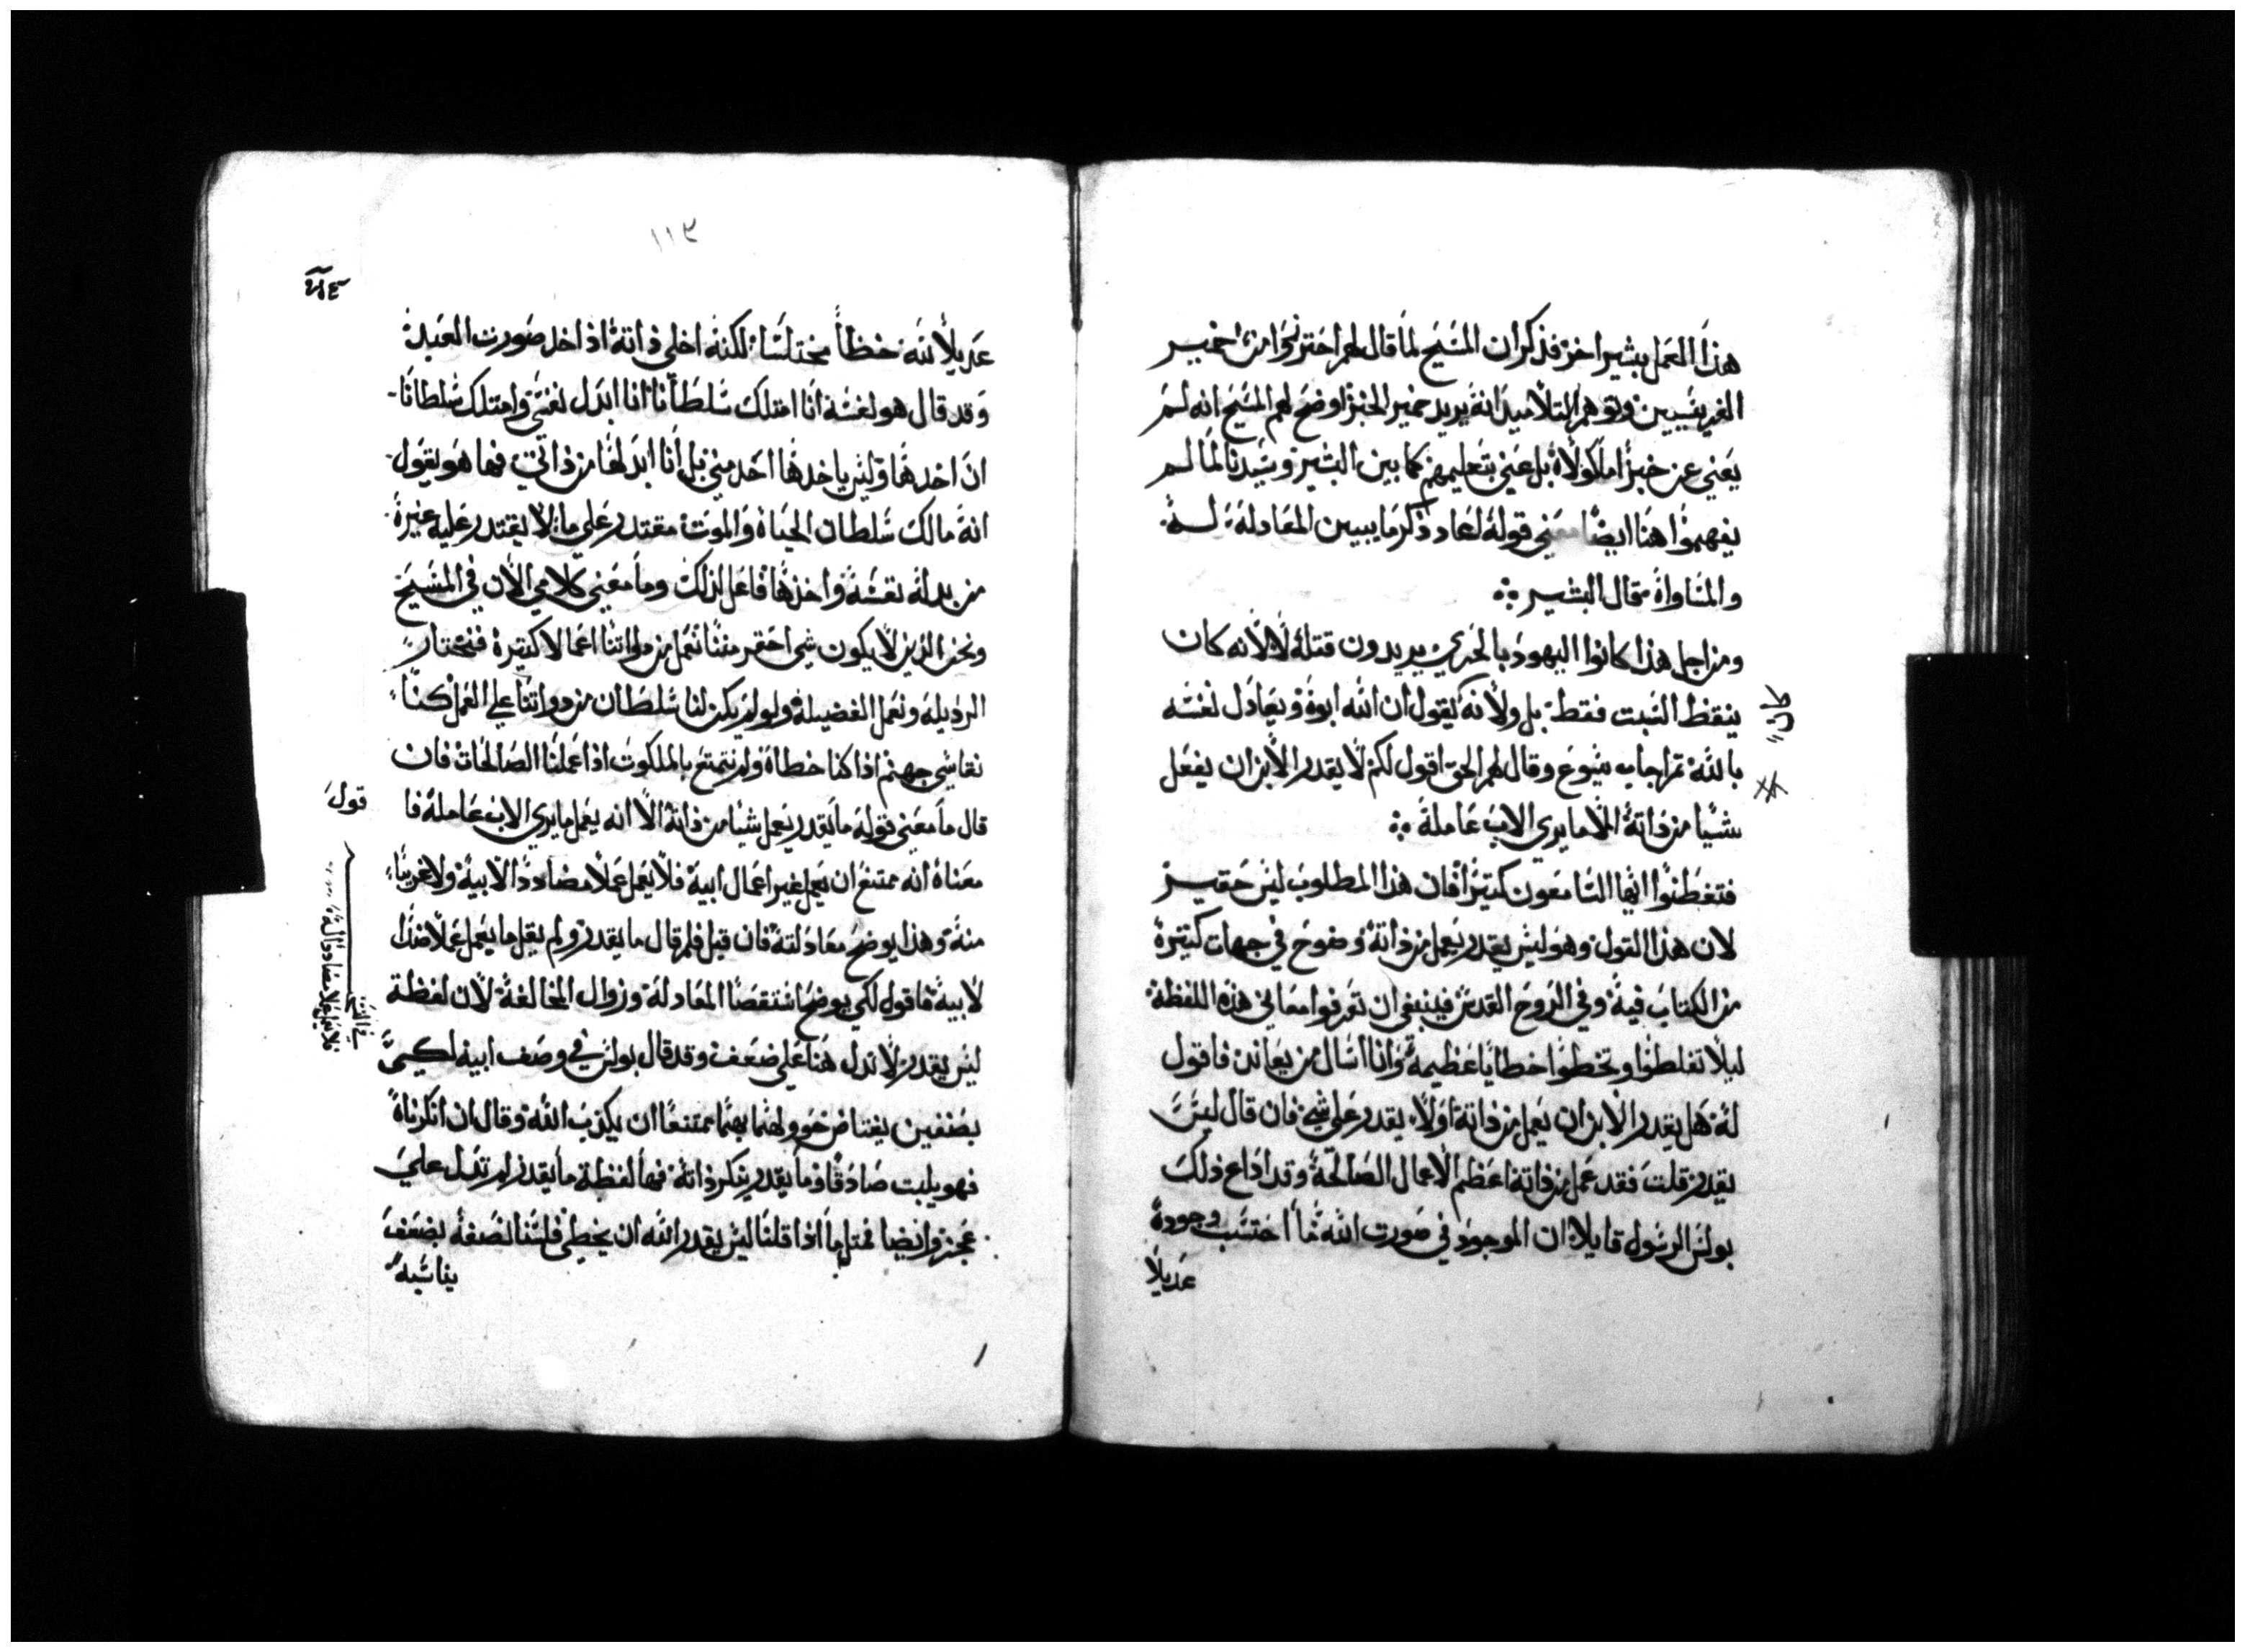 هذا العمل بشير اخر فذكر ان المسيح لما قال لهم احترزوا من خمير
الفريسيين وتوهم التلاميذ انه يريد خمير الخبز اوضح لهم المسيح انه لم
يعني عن خبزًا ماكولاً بل عني بتعليمهم كما بين البشير وسيدنا لما لم
يفهموا هنا ايضًا معني قوله لعاد ذكر ما يبين المعادله له
والمساواة فقال البشير
ومن اجل هذا كانوا اليهود بالحري يريدون قتله لا لانه كان
ينقظ السبت فقط بل ولانه كان يقول ان الله ابوه ويعادل نفسه
بالله ثم اجاب يسوع وقال لهم الحق اقول لكم لا يقدر الابن ان يفعل
شيًا من ذاته الا ما يري الاب عامله
فتفطنوا ايها السامعون كثيرًا فان هذا المطلوب ليس حقير
لان هذا القول وهو ليس يقدر يعمل من ذاته وضوح في جهات كثيرة
من الكتاب فيه وفي الروح القدس فينبغي ان تعرفوا معاني هذه اللفظة
ليلا تغلطوا وتخطوا خطايا عظيمة وانا اسال من يعاند فاقول
له هل يقدر الابن ان يعمل من ذاته اولا يقدر علي شي فان قال ليس
يقدر قلت فقد عمل من ذاته اعظم الاعمال الصالحة وقد اذاع ذلك
بولس الرسول قايلا ان الموجود في صورت الله ما احتسب وجوده
عديلاً
١١٣
عديلاً لله خظاً مختلسًا لكنه اخلي ذاته اذ اخد صورت العبد
وقد قال هو لفسه انا امتلك سلطانًا انا ابدل نفسي وامتلك سلطانًا
ان اخدها وليس ياخدها احد مني بل انا ابدلها من ذاتي فها هو يقول
انه مالك سلطان الحياة والموت مقتدر علي ما لا يقتدر عليه غيره
من بدله نفسه واخذها فاعل لذلك وما معني كلامي الان في المسيح
ونحن الذين لا يكون شي احقر مننا نعمل من ذواتنا اعمالا كتيرة فنختار
الرديله ونعمل الفضيله ولو لم يكن لنا سلطان من ذواتنا علي العمل كنا
نقاسي جهنم اذا كنا خطاة ولم نتمتع بالملكوت اذا عملنا الصالحات فان
قال ما معني قوله ما يقدر يعمل شيا من ذاته الا انه يعمل ما يري الاب عامله فا
قول
معناه انه ممتنع ان يعمل غير اعمال ابيه فلا يعمل عملا مضاددًا لابيه ولا غريبًا
منه وهذا يوضح معادلته فان قيل فلم قال ما يقدر ولم يقل ما يعمل عملا ضدًا
لابيه فاقول لكي يوضح استقصا المعادلة وزوال المخالفة لان لفظة
ليس يقدر لا تدل هنا علي ضعف وقد قال بولس في وصف ابيه لكيمّا
بصنفين يعتاض خوولهما بهما ممتنعًا ان يكذب الله وقال ان انكرناه
فهو يلبت صادقًا وما يقدر ينكر ذاته فها لفظة ما يقدر لم تدل علي
عجز وايضا فمثل ما اذا قلنا ليس يقدر الله ان يخطي فلسنا نصفه بضعف
يناسبه